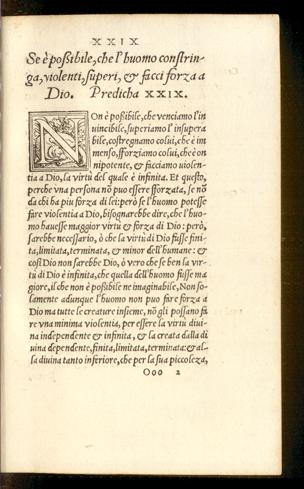 XXIX
Se è poßibile, che l'huomo constrin-
ga, violenti, superi, & facci forza a
Dio. Predicha XXIX.
NOn è poßibile, che venciamo l'in
uincibile, superiamo l'insupera
bile, costregnamo colui, che è im
menso, sforziamo colui, che è on
nipotente, & facciamo violen-
tia a Dio, la virtù del quale è infinita. Et questo,
perche vna persona nõ puo essere sforzata, se nõ
da chi ha piu forza di lei: però se l'huomo potesse
fare violentia a Dio, bisognarebbe dire, che l'huo-
mo hauesse maggior virtù & forza di Dio: però,
sarebbe necessario, ò che la virtù di Dio fusse fini-
ta, limitata, terminata, & minor dell'humane: &
cosi Dio non sarebbe Dio, ò vero che se ben la vir-
tù di Dio è infinita, che quella dell'huomo fusse ma
giore, il che non è poßibile ne imaginabile. Non so-
lamente adunque l'huomo non puo fare forza a
Dio ma tutte le creature insieme, nõ gli possano fa
re vna minima violentia, per essere la virtù diui-
na independente & infinita, & la creata dalla di
uina dependente, finita, limitata, terminata: & al-
la diuina tanto inferiore, che per la sua piccoleza,
Ooo 2